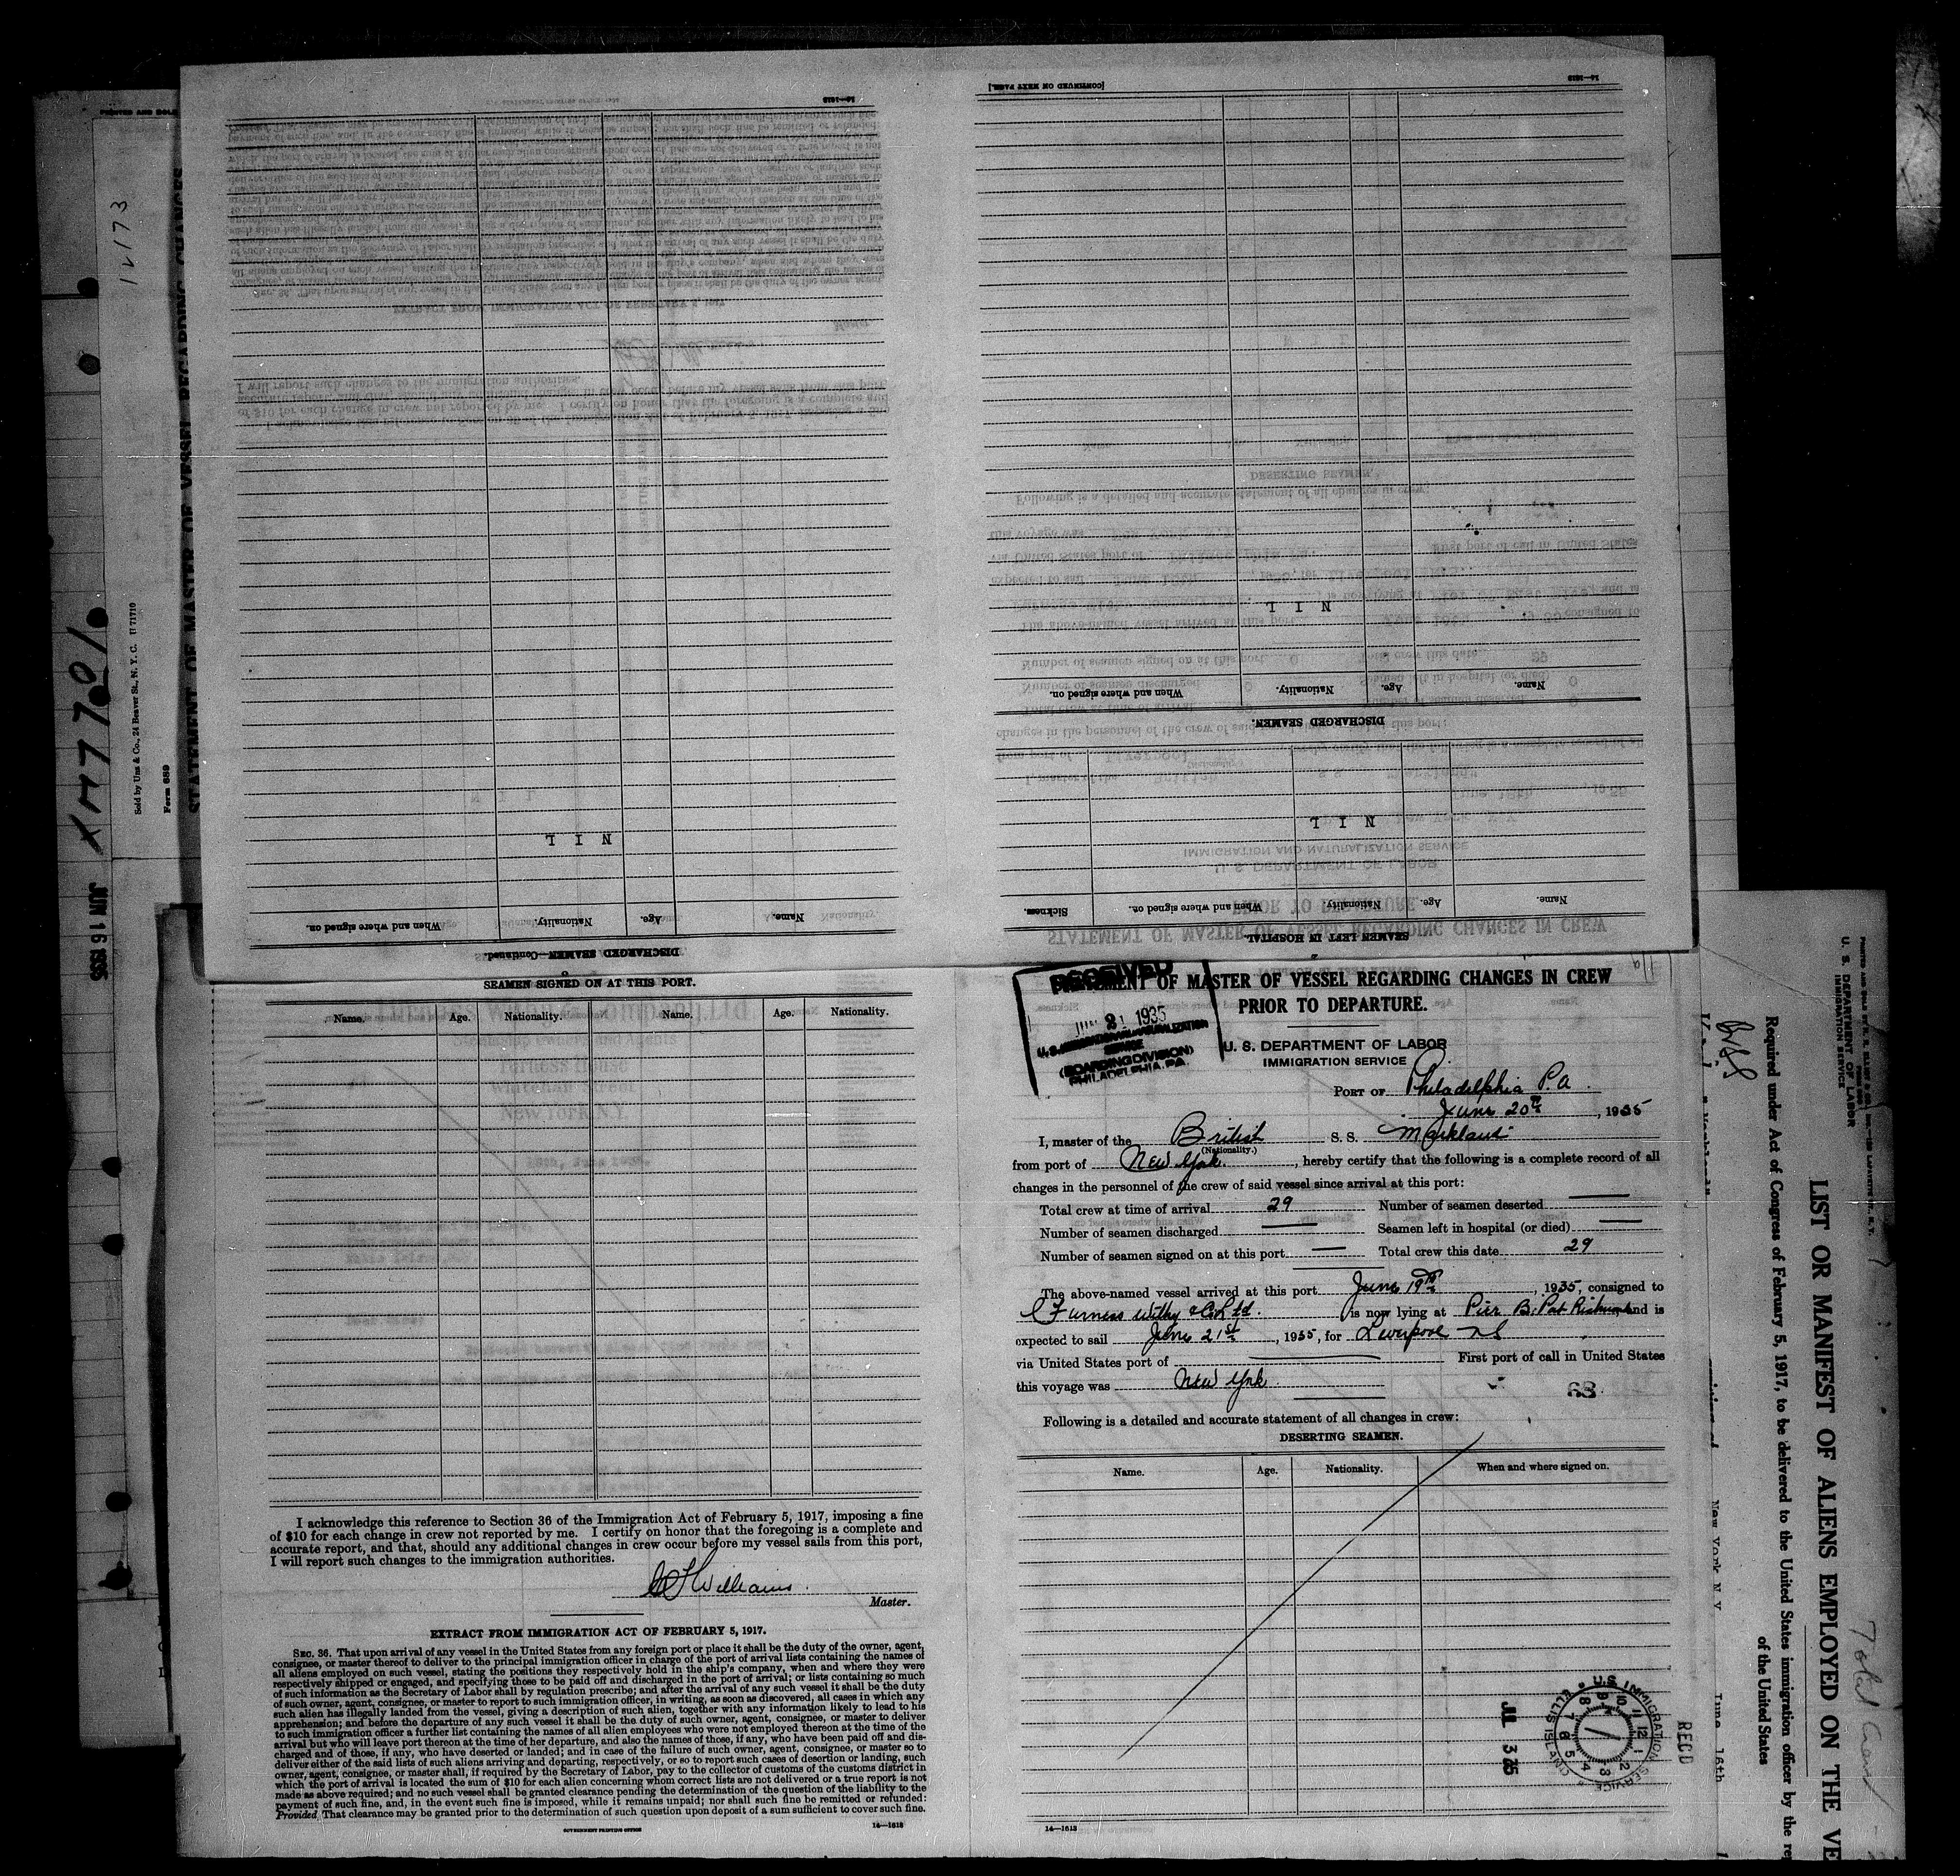 SEAMEN SIGNED ON AT THIS PORT.
Name. Age. Nationality. Name. Age. Nationality.
I acknowledge this reference to Section 36 of the Immigration Act of February 5, 1917, imposing a fine
of $10 for each change in crew not reported by me. I certify on honor that the foregoing is a complete and
accurate report, and that, should any additional changes in crew occur before my vessel sails from this port,
I will report such changes to the immigration authorities.
Williams
Master.
EXTRACT FROM IMMIGRATION ACT OF FEBRUARY 5, 1917.
SEC. 36. That upon arrival of any vessel in the United States from any foreign port or place it shall be the duty of the owner, agent,
consignee, or master thereof to deliver to the principal immigration officer in charge of the port of arrival lists containing the names of
all aliens employed on such vessel, stating the positions they respectively hold in the ship's company, when and where they were
respectively shipped or engaged, and specifying those to be paid off and discharged in the port of arrival; or lists containing so much
of such information as the Secretary of Labor shall by regulation prescribe; and after the arrival of any such vessel it shall be the duty
of such owner, agent, consignee, or master to report to such immigration officer, in writing, as soon as discovered, all cases in which any
such alien has illegally landed from the vessel, giving a description of such alien, together with any information likely to lead to his
apprehension; and before the departure of any such vessel it shall be the duty of such owner, agent, consignee, or master to deliver
to such immigration officer a further list containing the names of all alien employees who were not employed thereon at the time of the
arrival but who will leave port thereon at the time of her departure, and also the names of those, if any, who have been paid off and dis-
charged and of those, if any, who have deserted or landed; and in case of the failure of such owner, agent, consignee, or master so to
deliver either of the said lists of such aliens arriving and departing, respectively, or so to report such cases of desertion or landing, such
owner, agent, consignee, or master shall, if required by the Secretary of Labor, pay to the collector of customs of the customs district in
which the port of arrival is located the sum of $10 for each alien concerning whom correct lists are not delivered or a true report is not
made as above required; and no such vessel shall be granted clearance pending the determination of the question of the liability to the
payment of such fine, and, in the event such fine is imposed, while it remains unpaid; nor shall such fine be remitted or refunded:
Provided, That clearance may be granted prior to the determination of such question upon deposit of a sum sufficient to cover such fine.
GOVERNMENT PRINTING OFFICE 14—1613
RECEIVED
1935
(BOARDING DIVISION)
PHILADELPHIA, PA.
STATEMENT OF MASTER OF VESSEL REGARDING CHANGES IN CREW
PRIOR TO DEPARTURE.
U. S. DEPARTMENT OF LABOR
IMMIGRATION SERVICE
PORT OF Philadelphia Pa.
June 20th, 1935
I, master of the British S. S. Markland
(Nationality.)
from port of New York, hereby certify that the following is a complete record of all
changes in the personnel of the crew of said vessel since arrival at this port:
Total crew at time of arrival 29 Number of seamen deserted
Number of seamen discharged Seamen left in hospital (or died)
Number of seamen signed on at this port Total crew this date 29
The above-named vessel arrived at this port June 19th, 1935, consigned to
Furness Withy & Co Ltd. is now lying at Pier B. Port Richmond and is
expected to sail June 21st, 1935, for Liverpool NS
via United States port of First port of call in United States
this voyage was New York
68
Following is a detailed and accurate statement of all changes in crew:
DESERTING SEAMEN.
Name. Age. Nationality. When and where signed on.
JUL 3
REC'D
14—1613
DISCHARGED SEAMEN—Continued.
Name. Age. Nationality. When and where signed on.
N I L
14—1613
SEAMEN LEFT IN HOSPITAL.
Name. Age. Nationality. When and where signed on. Sickness.
N I L
DISCHARGED SEAMEN.
Name. Age. Nationality. When and where signed on.
N I L
[CONTINUED ON NEXT PAGE.]
14—1613
12173
Sold by Unz & Co., 24 Beaver St., N. Y. C. U 71710
Form 689
STATEMENT OF MASTER OF VESSEL REGARDING CHANGES
JUN 16 1935
U. S. DEPARTMENT OF LABOR
IMMIGRATION SERVICE
LIST OR MANIFEST OF ALIENS EMPLOYED ON THE VE
Required under Act of Congress of February 5, 1917, to be delivered to the United States immigration officer by the rep
of the United States
New York N Y
June 16th